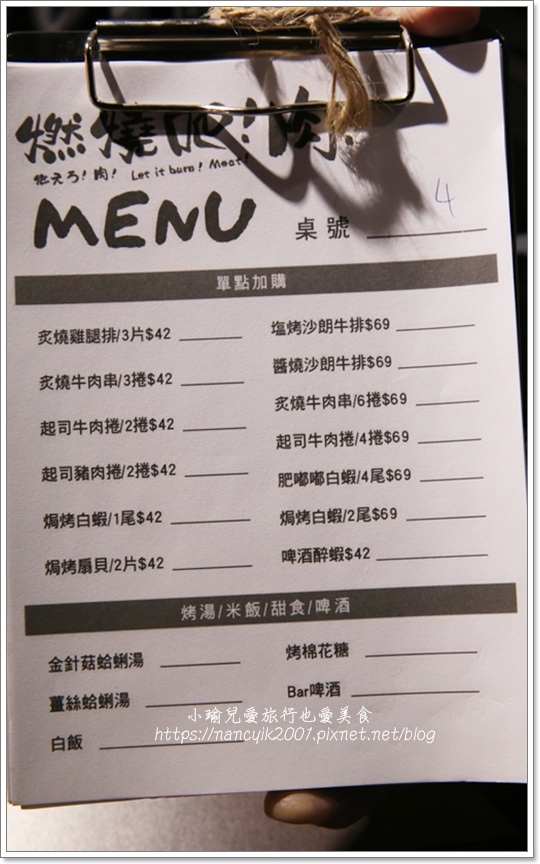 燃燒吧!肉!
燃えろ!肉! Let it burn! Meat!
MENU
桌號 4
單點加購
炙燒雞腿排/3片$42
炙燒牛肉串/3捲$42
起司牛肉捲/2捲$42
起司豬肉捲/2捲$42
焗烤白蝦/1尾$42
焗烤扇貝/2片$42
塩烤沙朗牛排$69
醬燒沙朗牛排$69
炙燒牛肉串/6捲$69
起司牛肉捲/4捲$69
肥嘟嘟白蝦/4尾$69
焗烤白蝦/2尾$69
啤酒醉蝦$42
烤湯/米飯/甜食/啤酒
金針菇蛤蜊湯
薑絲蛤蜊湯
白飯
烤棉花糖
Bar啤酒
小瑜兒愛旅行也愛美食
https://nancyik2001.pixnet.net/blog